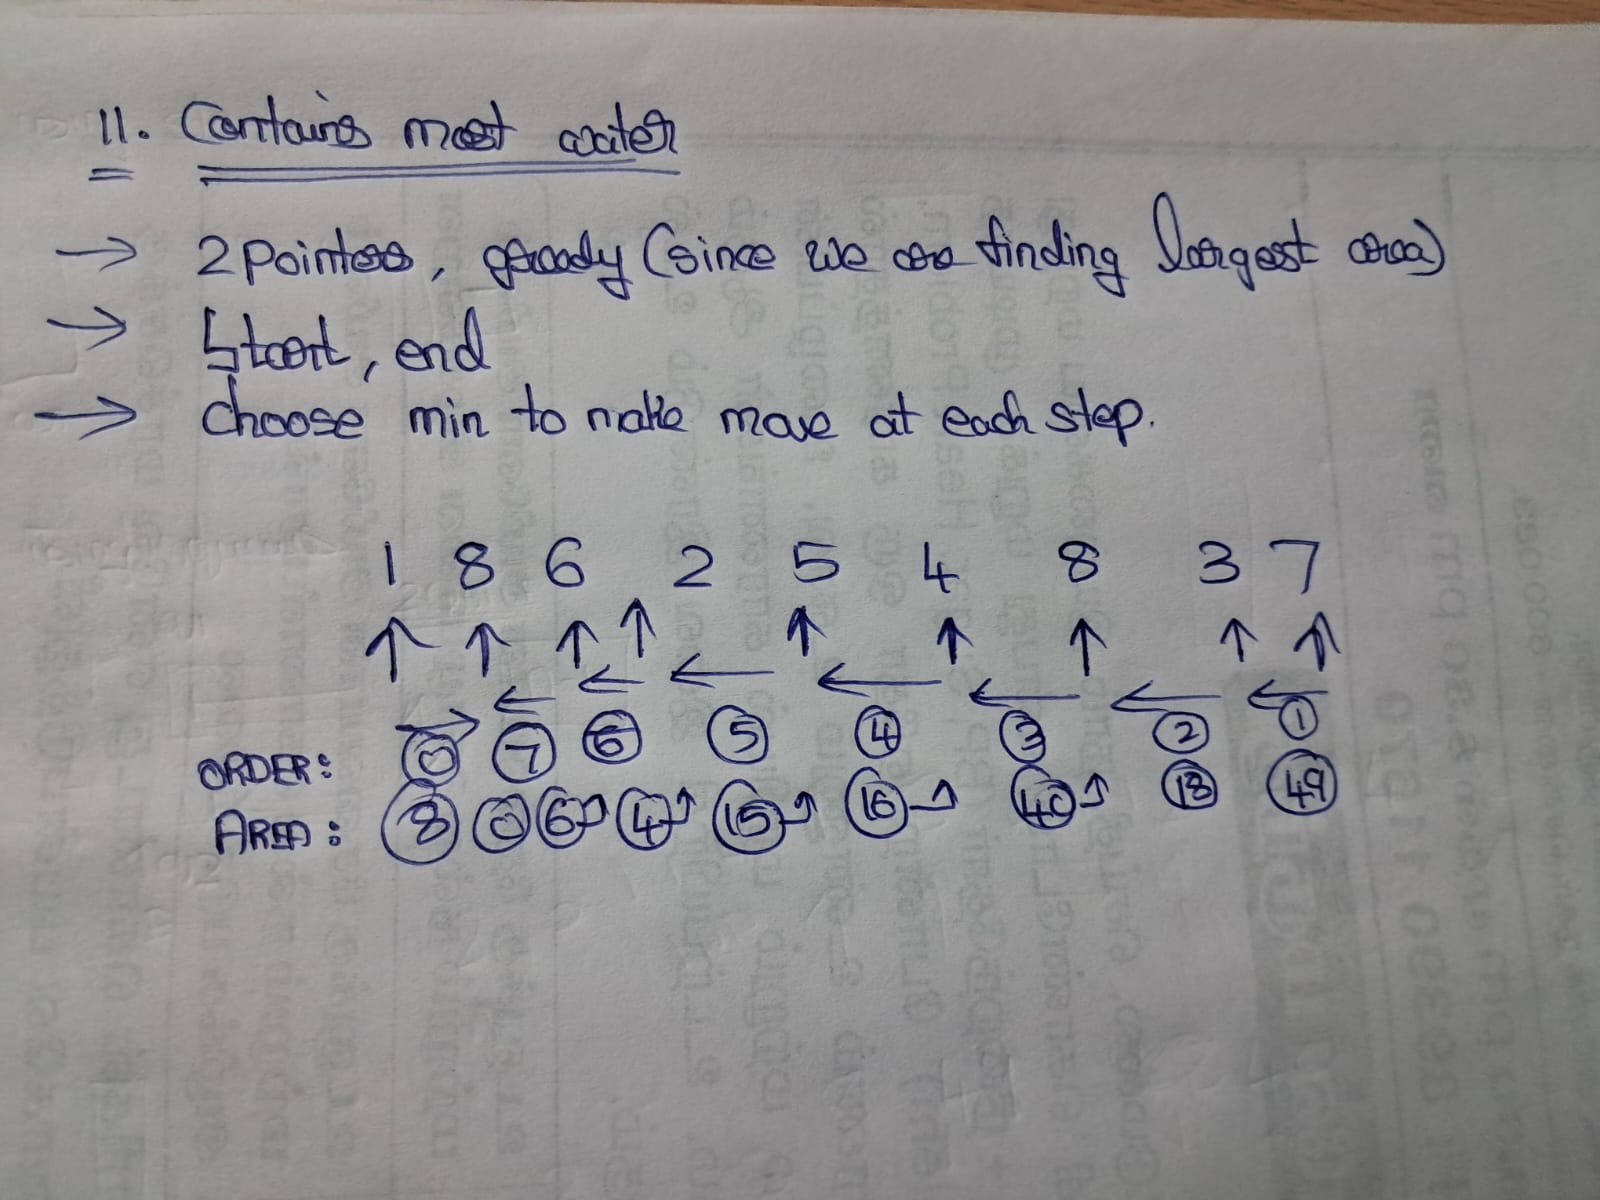 11. Contains most water
→ 2 Pointers, greedy (since we are finding largest area)
→ Start, end
→ choose min to make move at each step.
1 8 6 2 5 4 8 3 7
ORDER: 0 7 6 5 4 3 2 1
AREA: 8 0 6 4 15 16 40 18 49